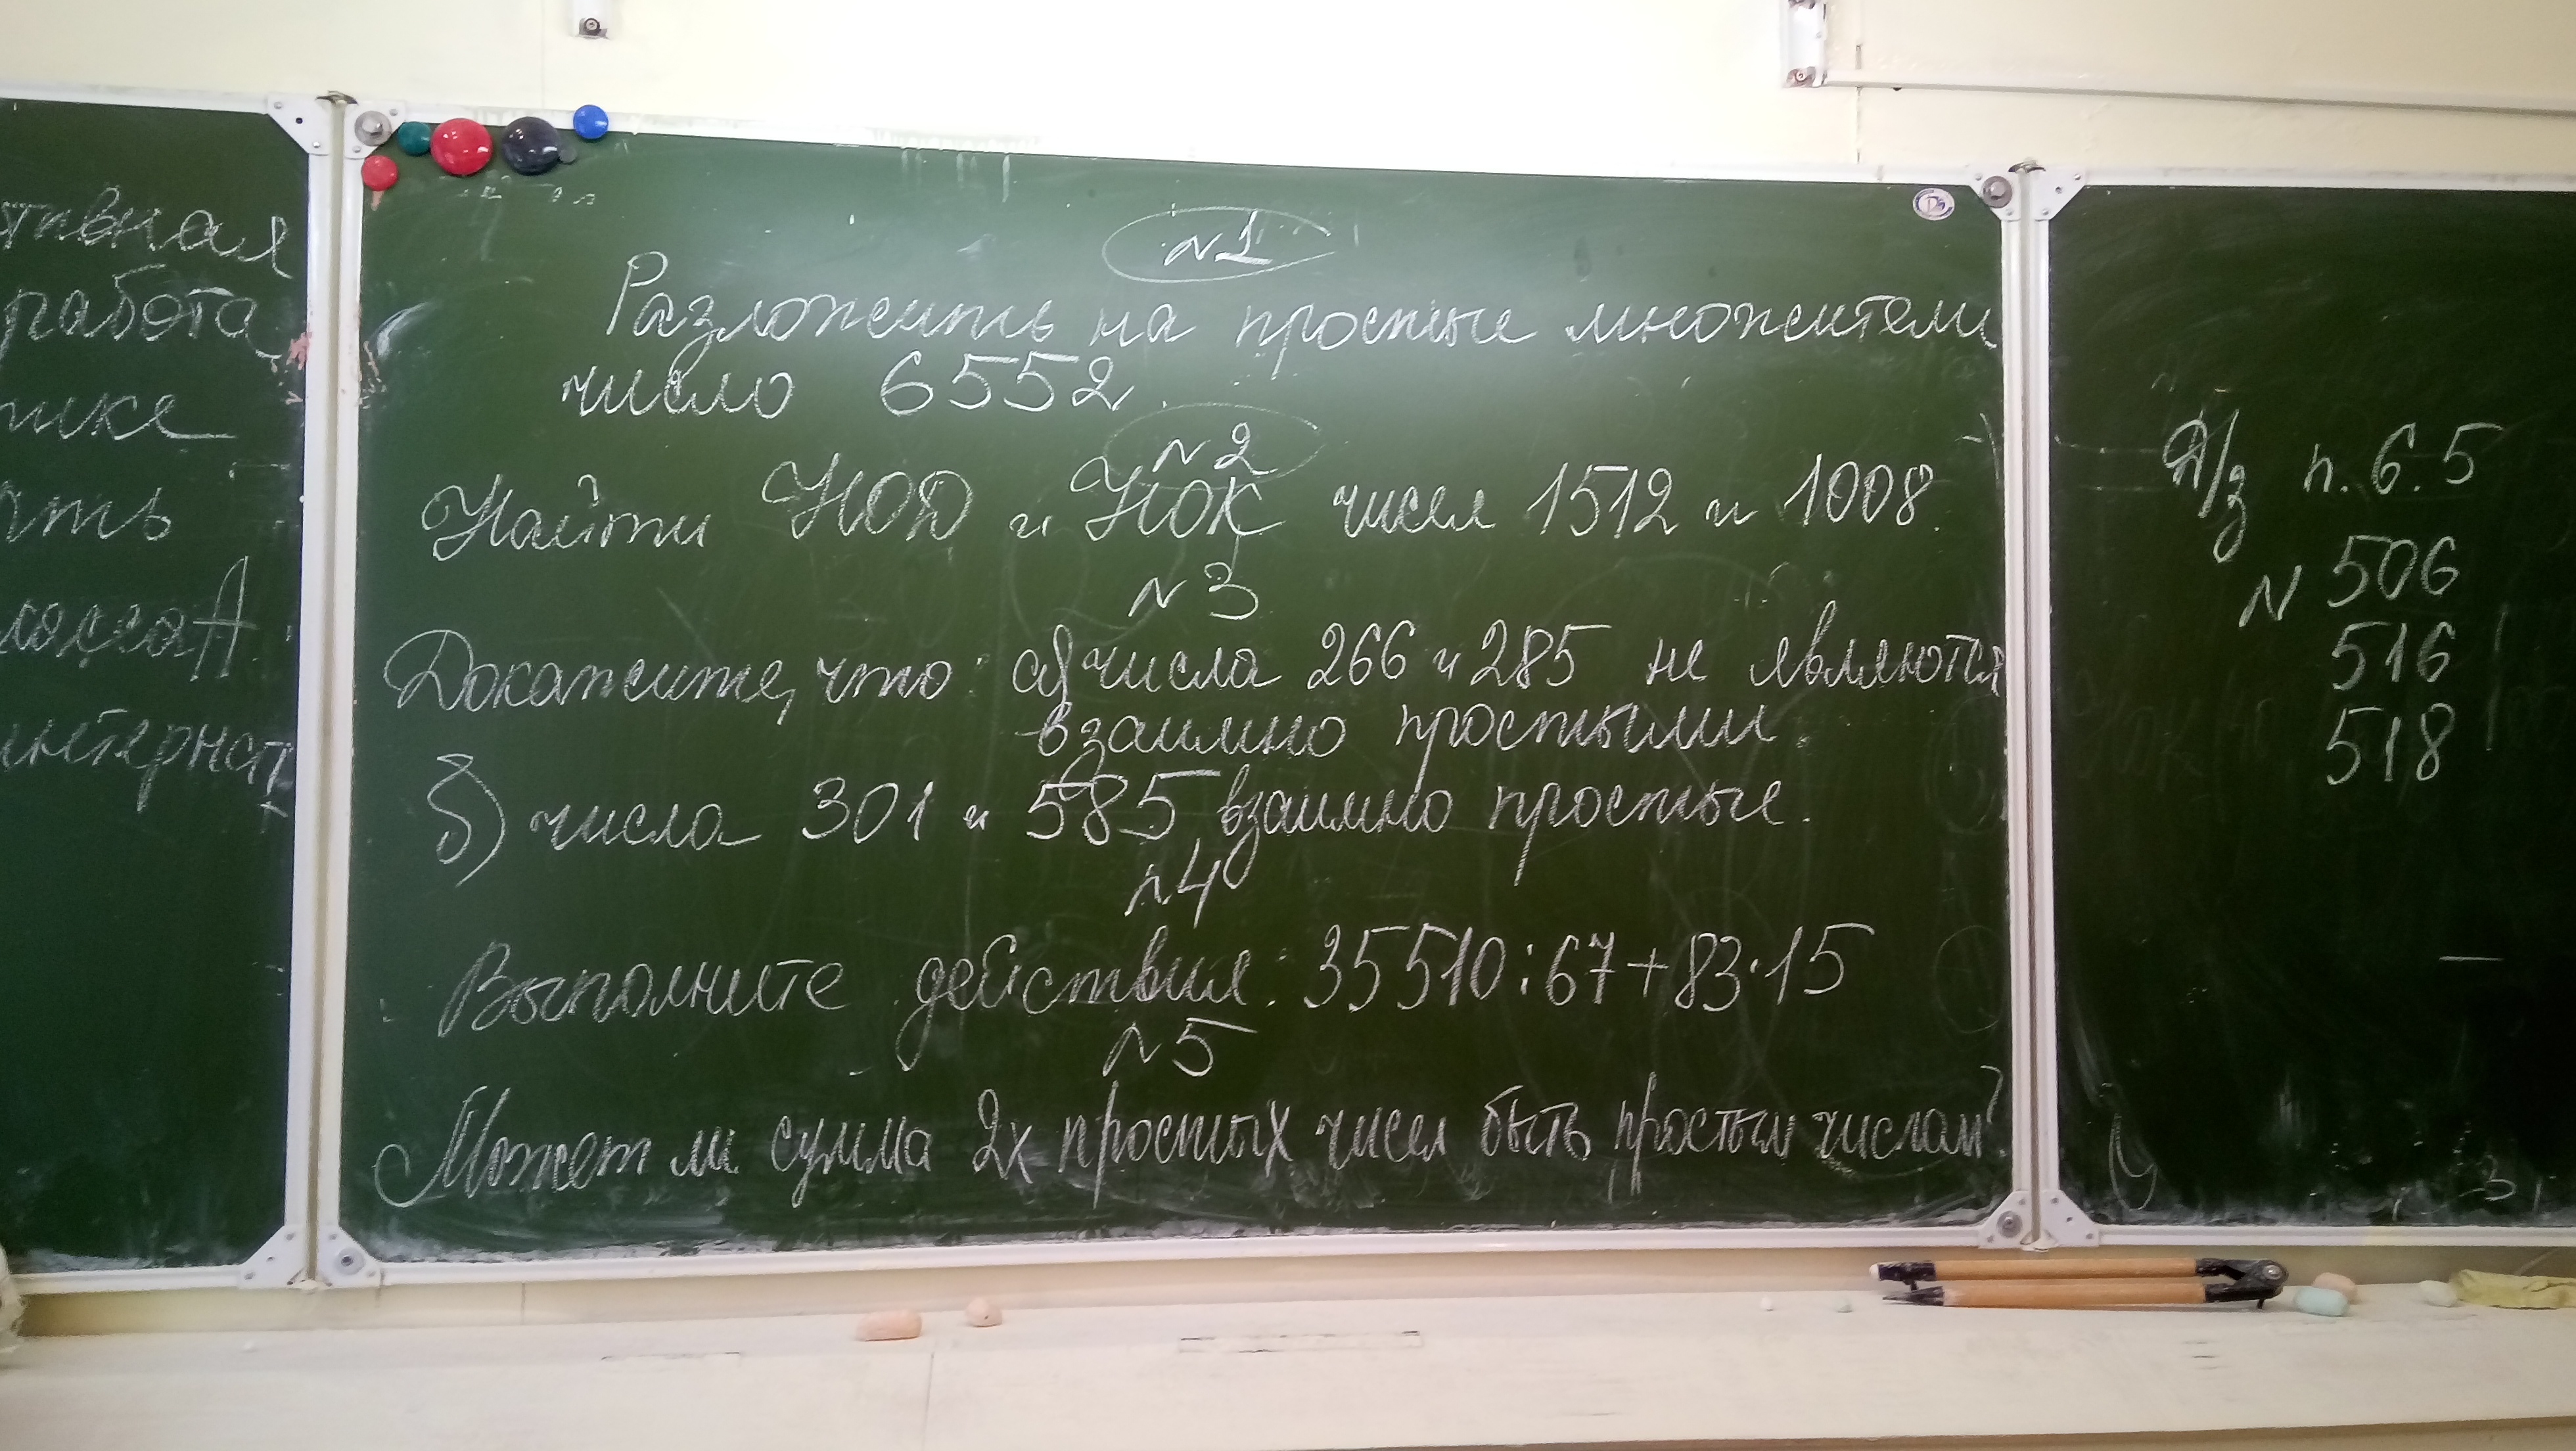 тивная
работа
тике
ать
класса А
интернат
№1
Разложить на простые множители
число 6552.
№2
Найти НОД и НОК чисел 1512 и 1008.
№3
Докажите, что: а) числа 266 и 285 не являются
взаимно простыми.
б) числа 301 и 585 взаимно простые.
№4
Выполните действия: 35510:67+83·15
№5
Может ли сумма 2х простых чисел быть простым числом?
Д/з п. 6.5
№ 506
516
518